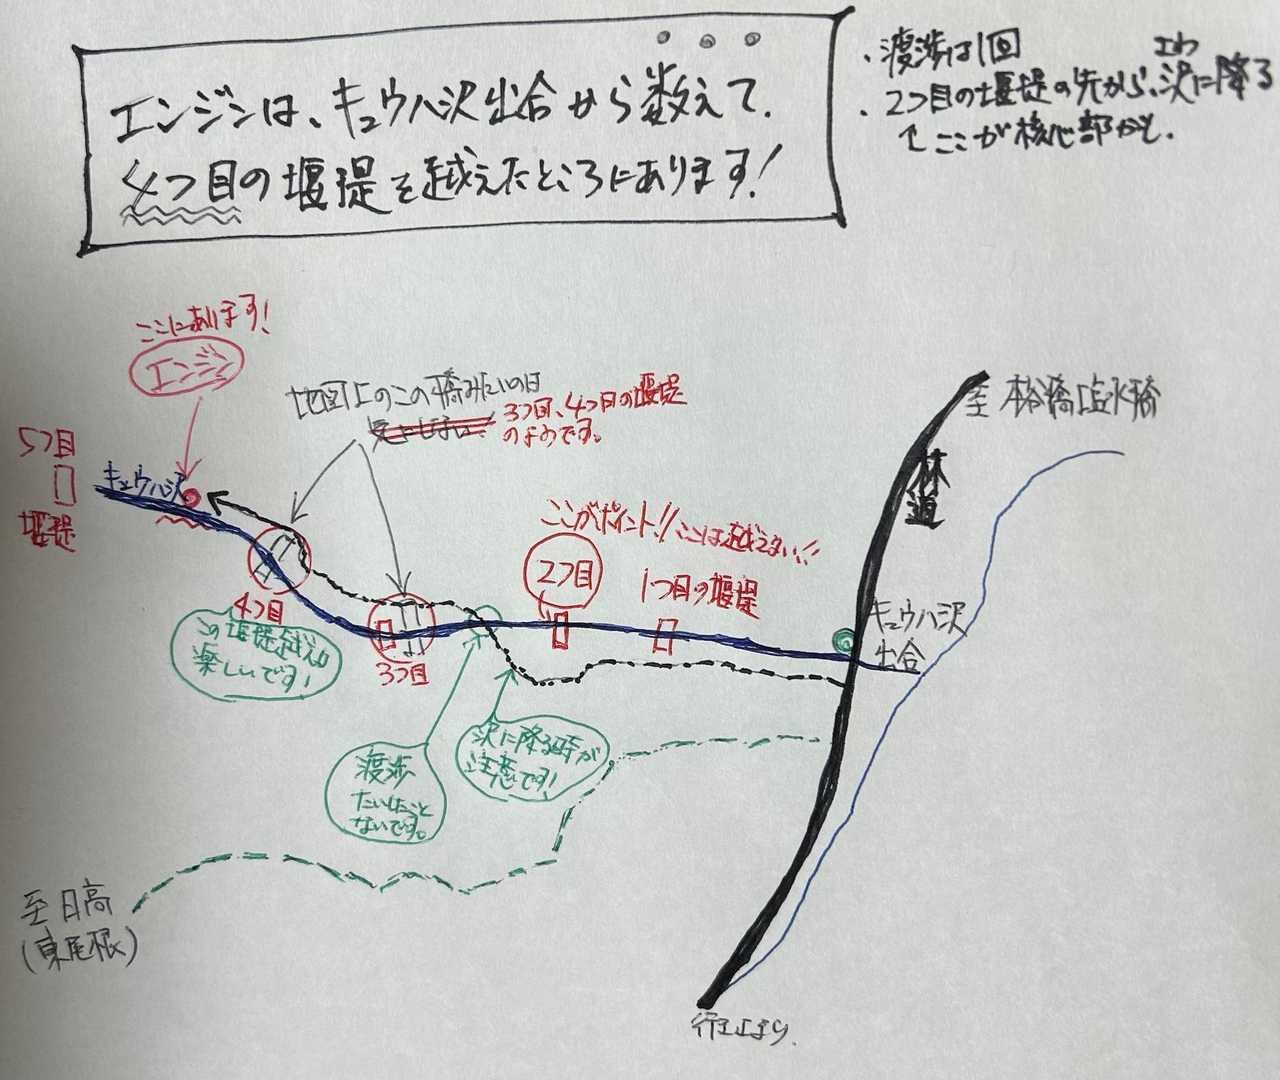 エンジンは、キュウハ沢出合から数えて、
4つ目の堰堤を越えたところにあります!
・渡渉は1回
コワ
・2つ目の堰堤の先から、沢に降る
↑ここが核心部かも。
ここにあります!
エンジン
地図上のこの橋みたいのは
3つ目、4つ目の堰堤
のようです。
5つ目
堰堤
キュウハ沢
ここがポイント!!ここは越えない!!
2つ目
1つ目の堰堤
4つ目
3つ目
この堰堤越えは
楽しいです!
渡渉
たいしたこと
ないです。
沢に降る時が
注意です!
至 本谷橋 塩水橋
林道
キュウハ沢
出合
至 日高
(東尾根)
行き止まり